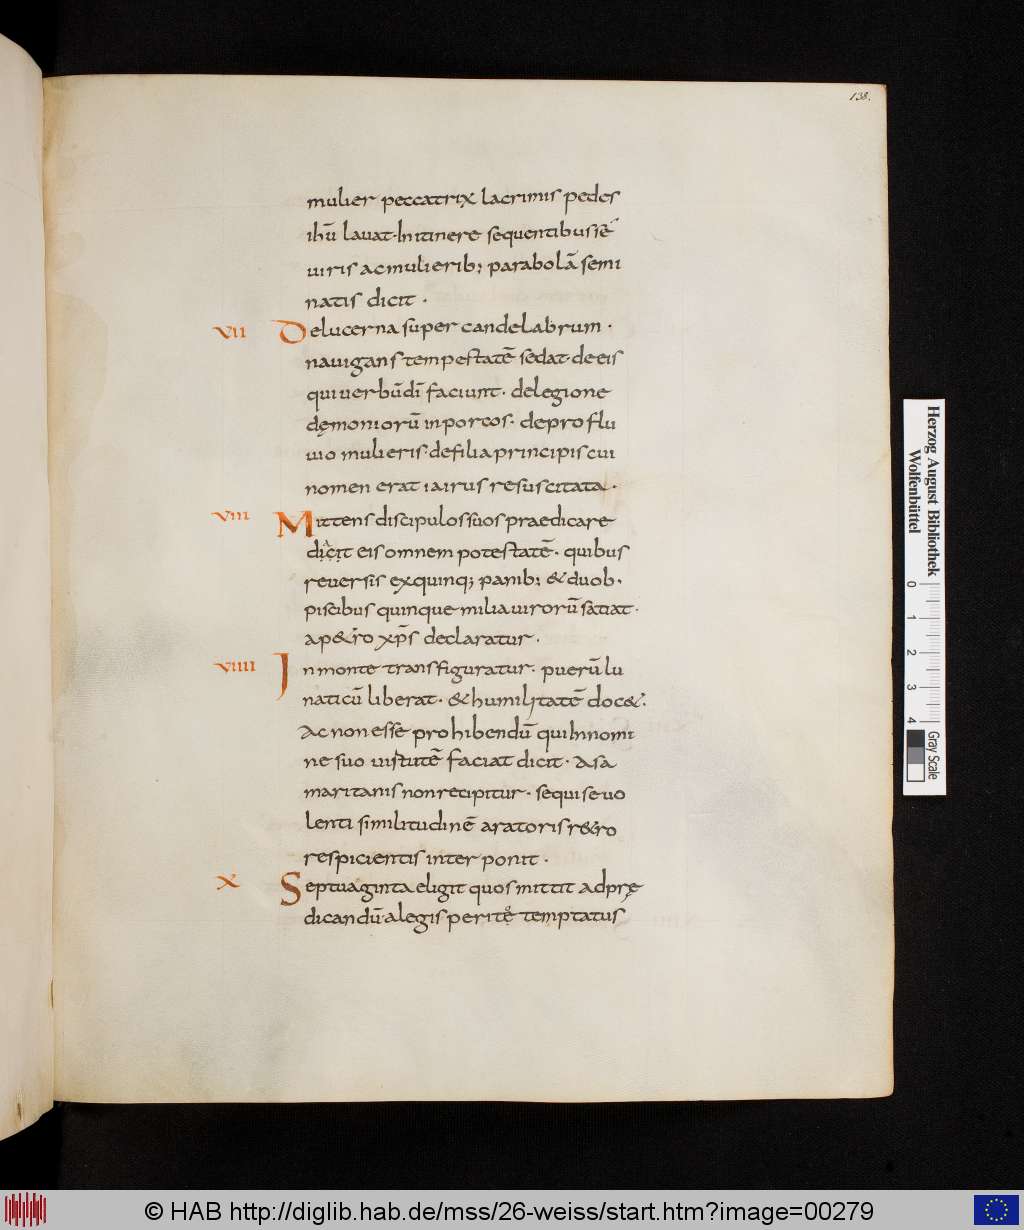 138.
mulier peccatrix lacrimis pedes
ihū lauat· In itinere sequentibus sē
uiris ac mulierib; parabolā semi
natis dicit ·
VII De lucerna super candelabrum ·
nauigans tempestatē sedat· de eis
qui uerbū dī faciunt · de legione
dęmoniorū in porcos · de proflu
uio mulieris· de filia principis cui
nomen erat iairus resuscitata ·
VIII Mittens discipulos suos praedicare
dicit eis omnem potestatē · quibus
reuersis ex quinq; panib; & duob·
piscibus quinque milia uirorū satiat ·
a p&ro xp̄s declaratur ·
VIIII In monte transfiguratur · puerū lu
naticū liberat · & humilitatē doc& ·
Ac non esse prohibendū qui In nomi
ne suo uirtutē faciat dicit · A sa
maritanis non recipitur · sequi se uo
lenti similitudinē aratoris r&ro
respicientis interponit ·
X Septuaginta eligit quos mittit ad prę
dicandū a legis perito temptatus
Herzog August Bibliothek
Wolfenbüttel
0 1 2 3 4
Gray Scale
© HAB http://diglib.hab.de/mss/26-weiss/start.htm?image=00279